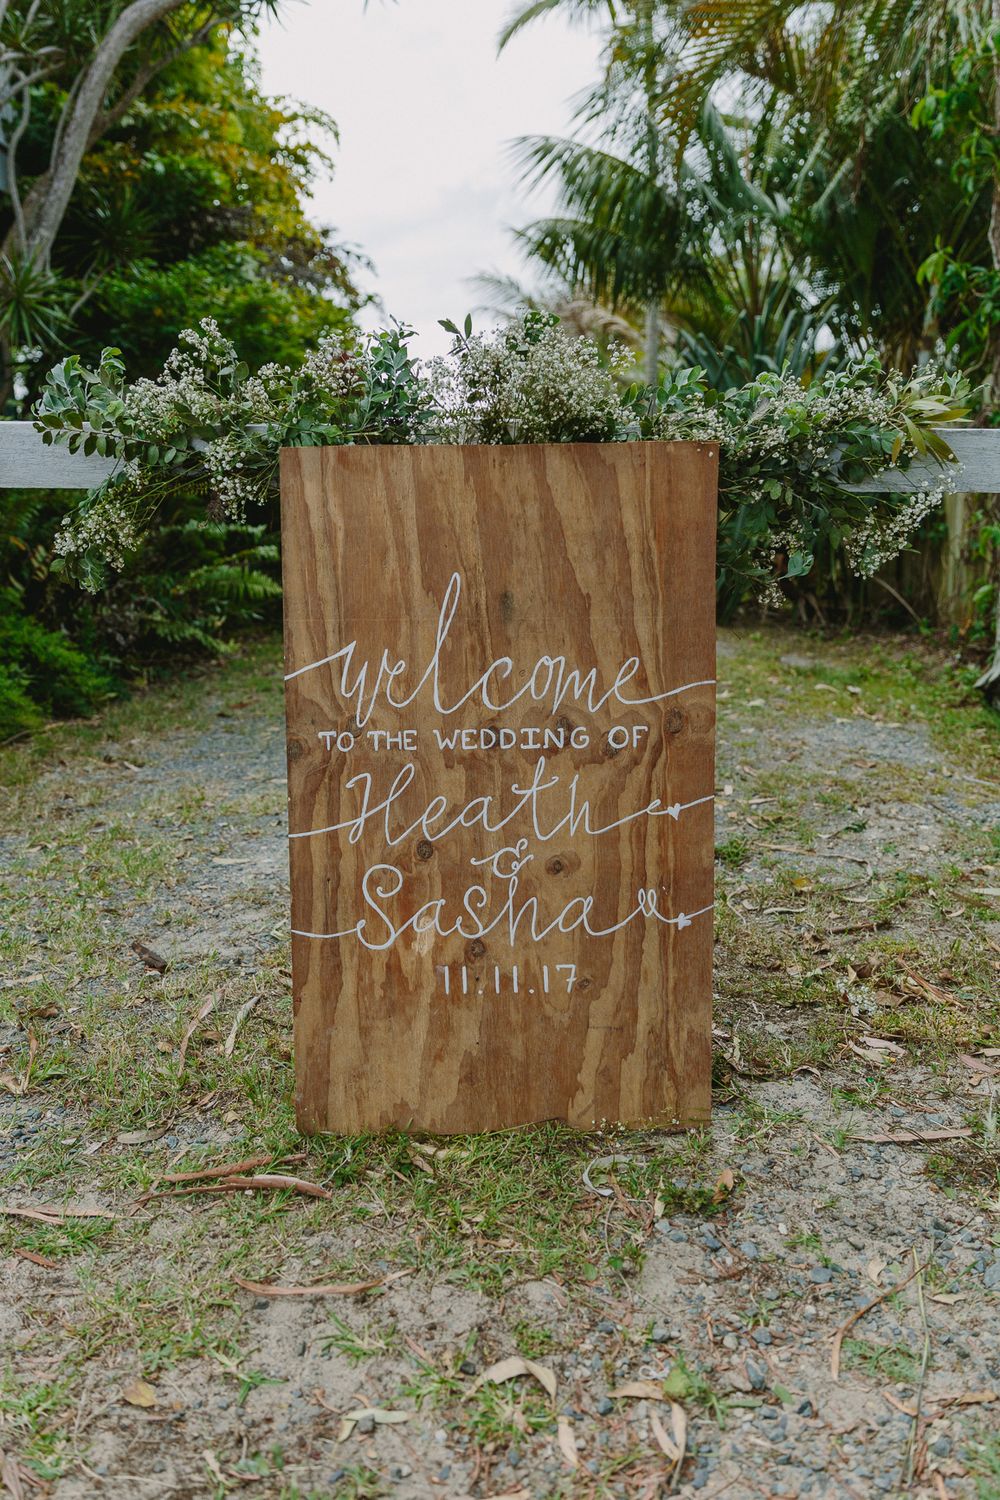 welcome
TO THE WEDDING OF
Heath
&
Sasha
11.11.17